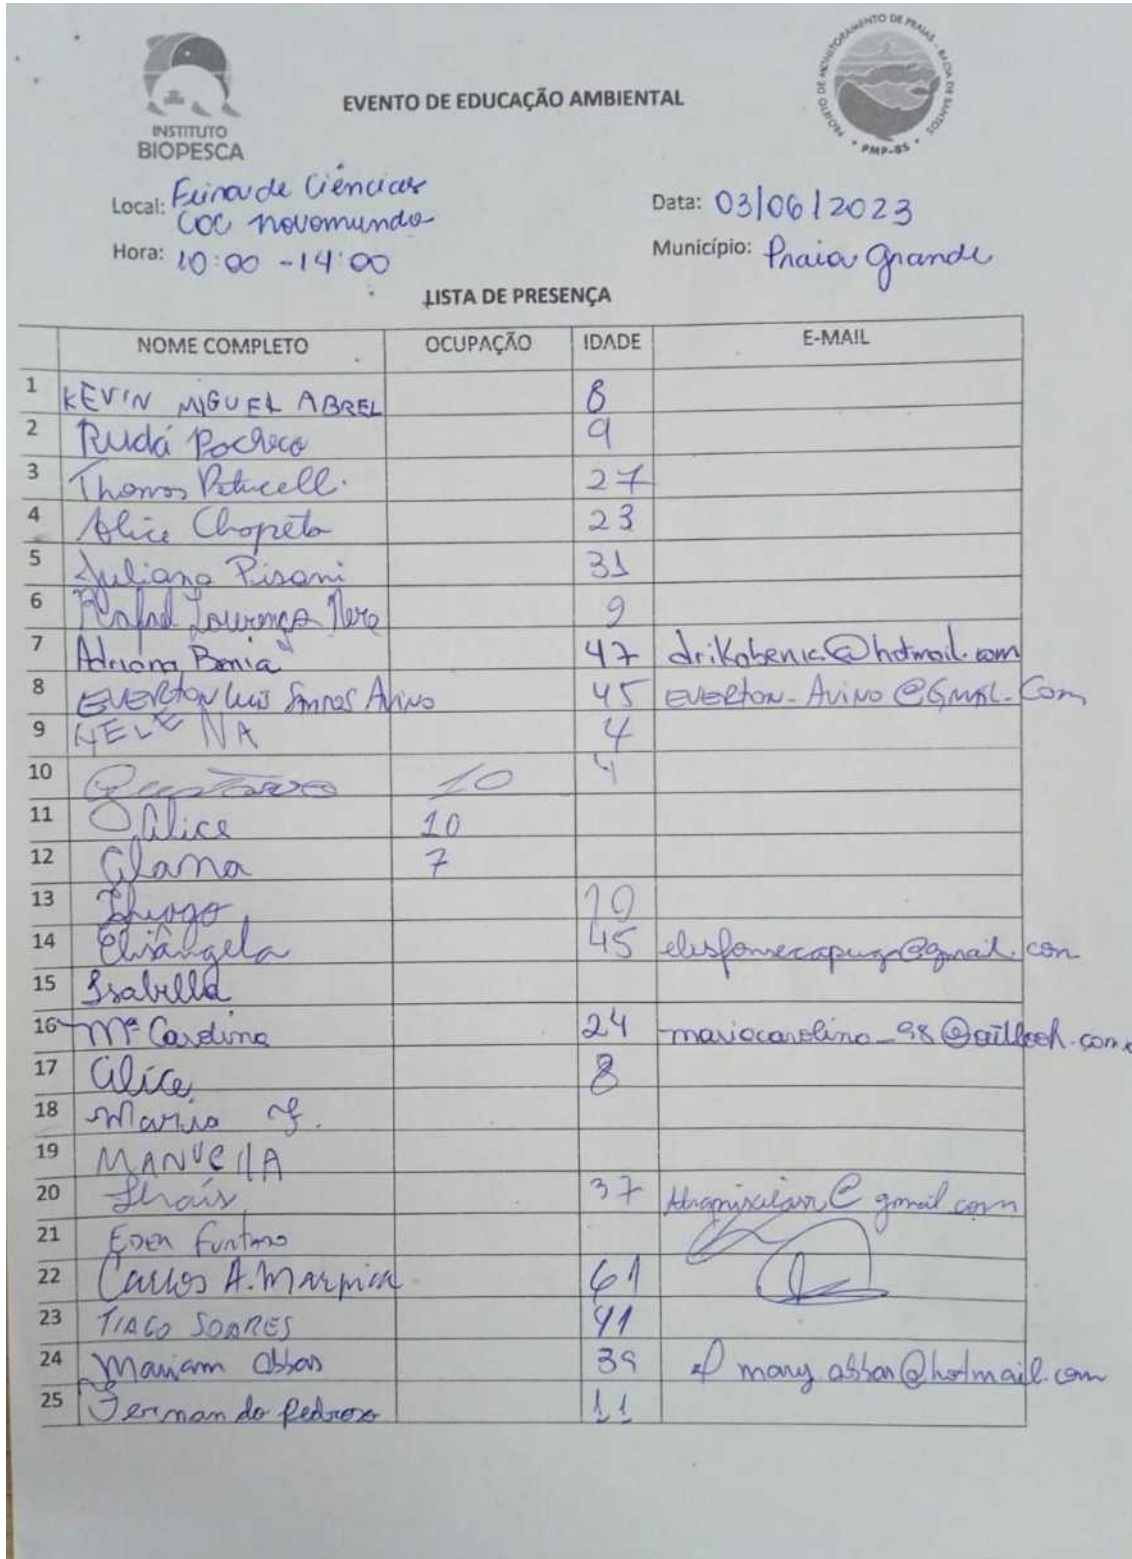 INSTITUTO
BIOPESCA
EVENTO DE EDUCAÇÃO AMBIENTAL
PROJETO DE MONITORAMENTO DE PRAIAS - BACIA DE SANTOS
PMP-BS
Local: Feira de Ciências
COC novomundo
Data: 03/06/2023
Hora: 10:00 - 14:00
Município: Praia Grande
LISTA DE PRESENÇA
NOME COMPLETO OCUPAÇÃO IDADE E-MAIL
1 KEVIN MIGUEL ABREL 8
2 Rudá Pacheco 9
3 Thomas 27
4 Alice 23
5 Juliana Pisani 31
6 Rafael Lourenço 9
7 Adriana Benia 47
8 EVERTON Luis Santos Avino 45 EVERTON-AVINO@GMAIL.Com
9 HELENA 4
10 Gustavo 10 4
11 Alice 10
12 Alana 7
13 Thiago
14 Elisângela 45
15 Isabella
16 Mª Carolina 24 mariacarolina_98@outlook.com
17 Alice 8
18 Maria J.
19 MANUELLA
20 Thaís 37
21 EDER FURTADO
22 Carlos A. 61
23 TIAGO SOARES 41
24 Mariam Abbas 39 mary abbas@hotmail.com
25 Fernando Pedroso 11